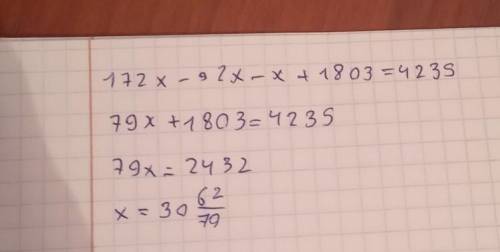 172x - 92x - x + 1803 = 4235
79x + 1803 = 4235
79x = 2432
x = 30 62/79